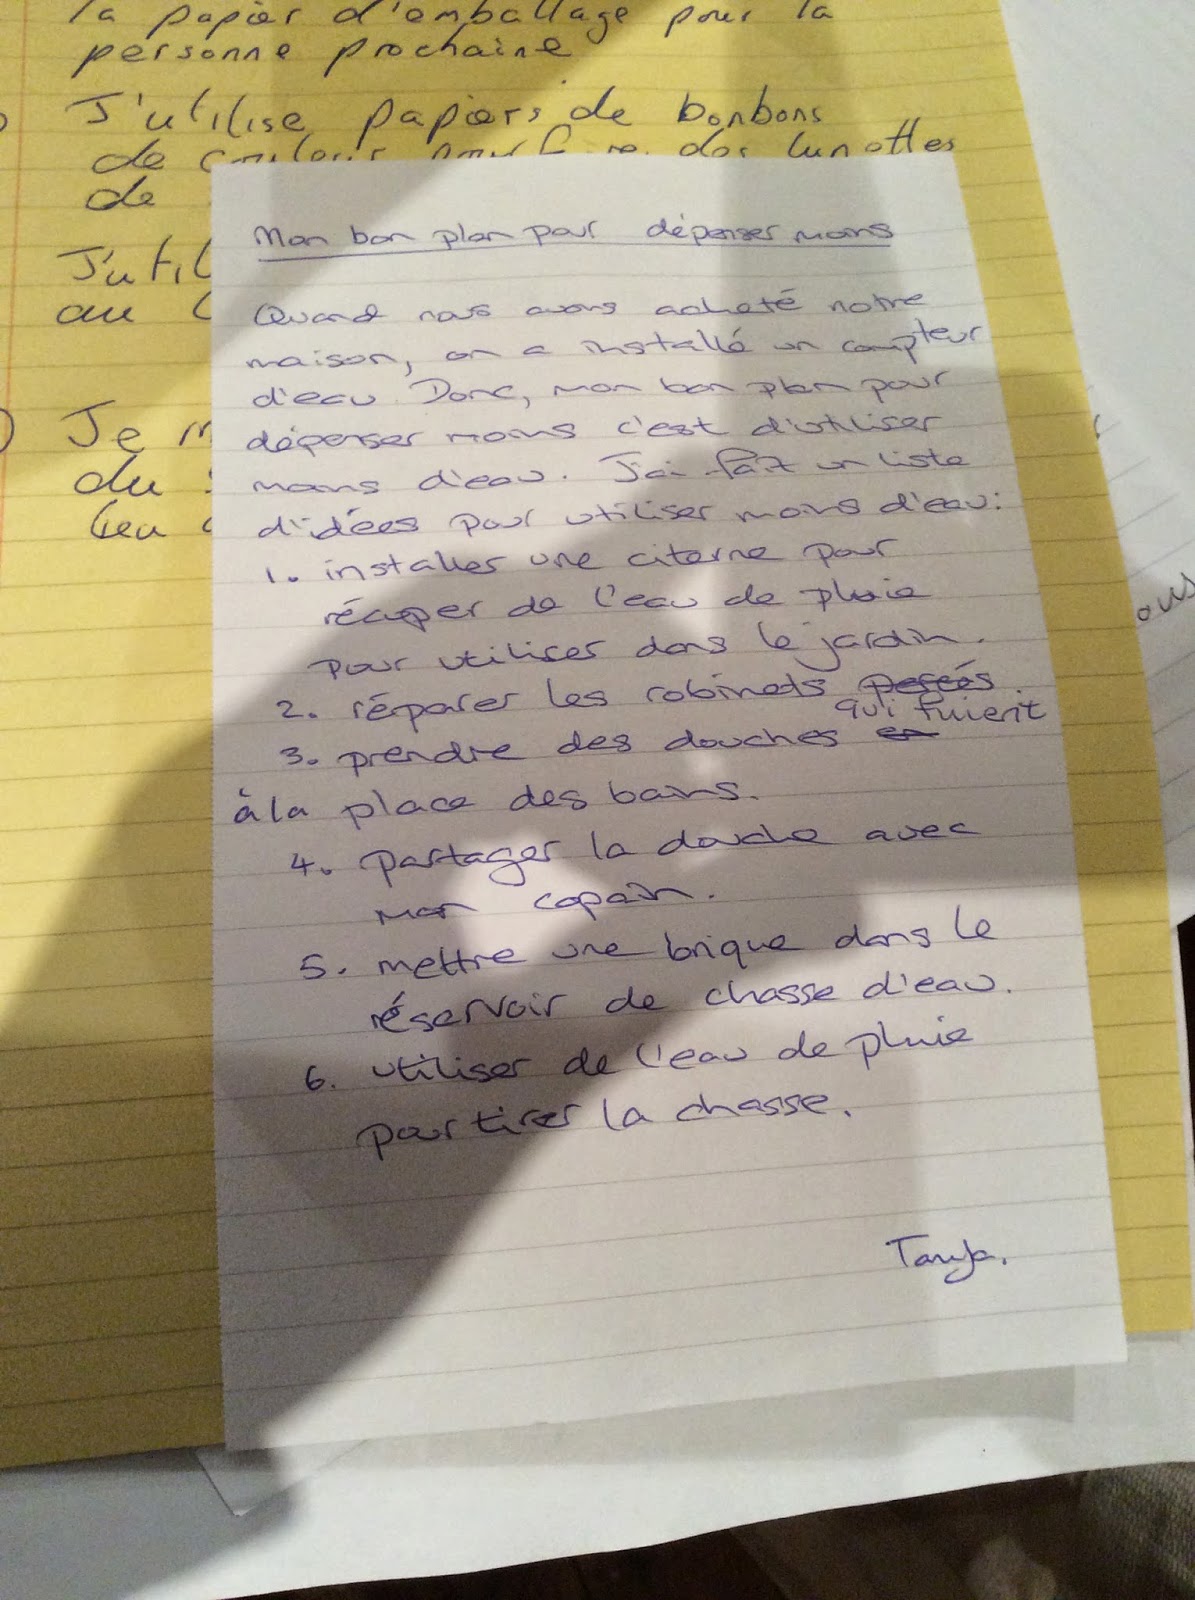 la papier d'emballage pour la
personne prochaine
J'utilise papiers de bonbons
de couleurs pour faire des lunettes
de
J'util
au l
Je m
du s
lieu
Mon bon plan pour dépenser moins
Quand nous avons acheté notre
maison, on a installé un compteur
d'eau. Donc, mon bon plan pour
dépenser moins c'est d'utiliser
moins d'eau. J'ai fait un liste
d'idées pour utiliser moins d'eau:
1. installer une citerne pour
récuper de l'eau de pluie
pour utiliser dans le jardin.
2. réparer les robinets
qui fuient
3. prendre des douches
à la place des bains.
4. partager la douche avec
mon copain.
5. mettre une brique dans le
réservoir de chasse d'eau.
6. utiliser de l'eau de pluie
pour tirer la chasse.
Tanja.
ous